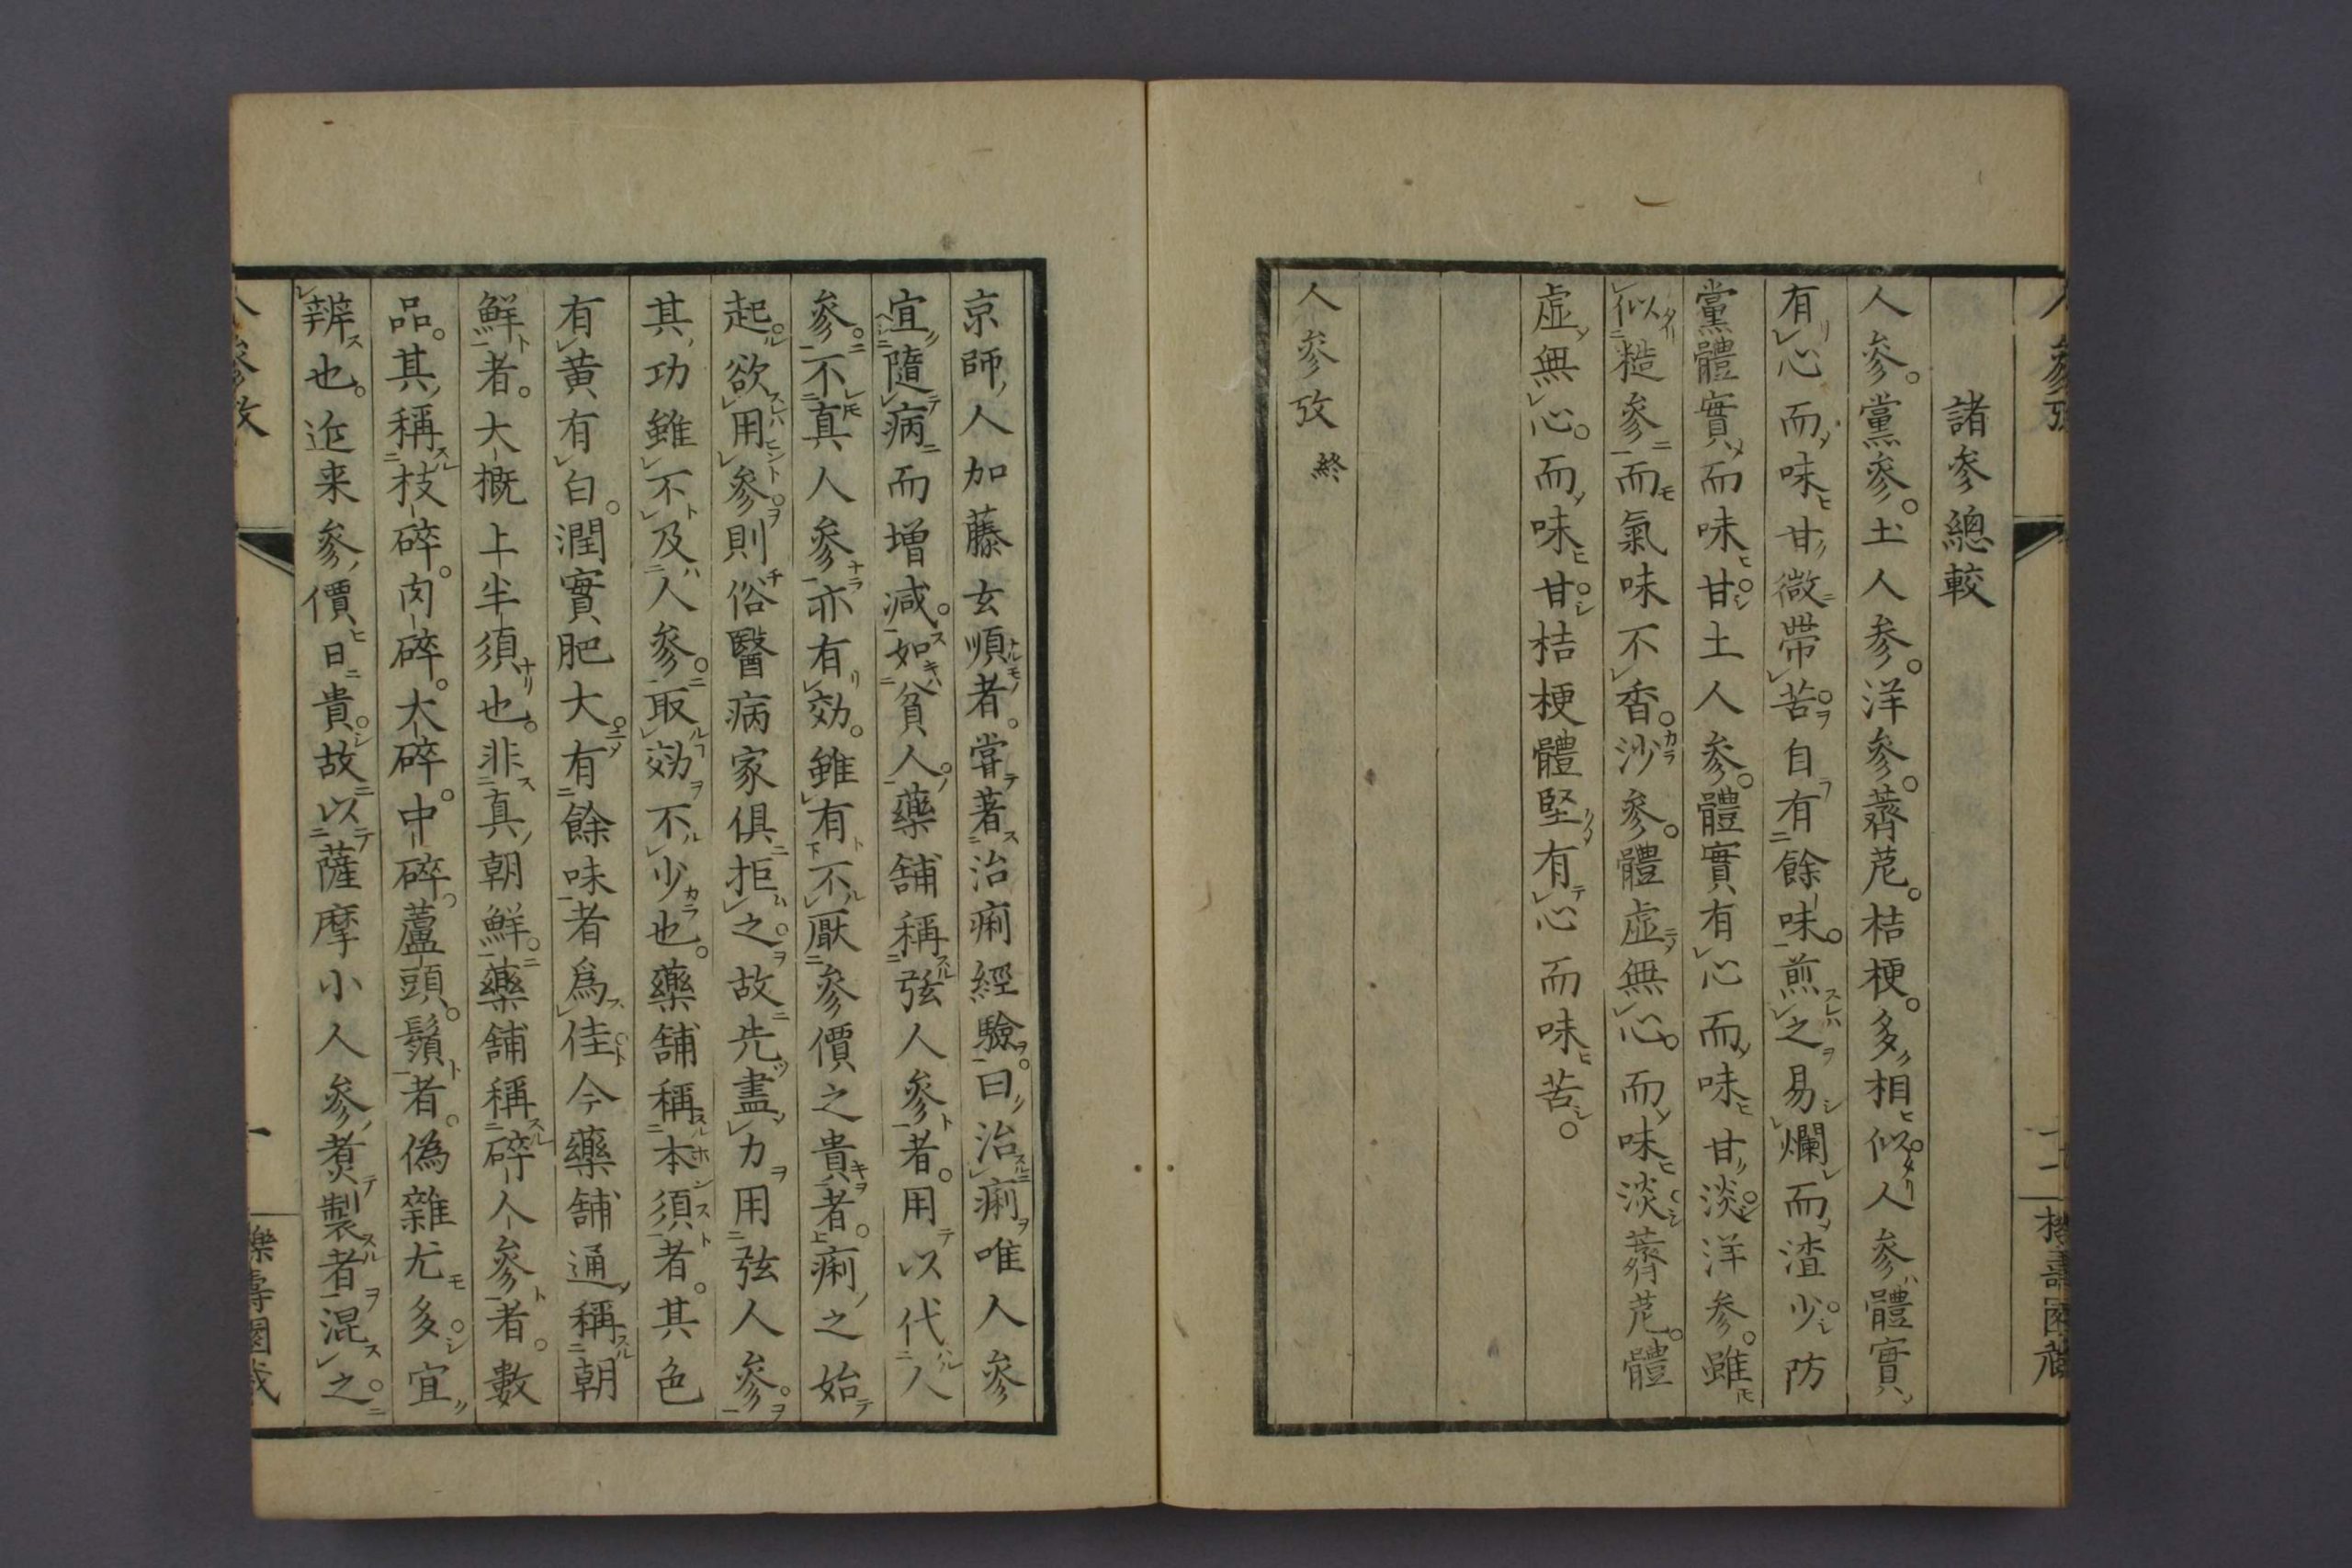 諸参總較
人參。黨參。土人参。洋參。薺苨。桔梗。多相似人參體實
有心而味甘微帶苦自有餘味。煎之易爛而渣少防
黨體實而味甘。土人參。體實有心而味甘淡。洋参。雖
似糙參而氣味不香。沙參。體虛無心。而味淡。薺苨。體
虛無心。而味甘。桔梗體堅有心而味苦。
人參攷 終
京師人加藤玄順者。甞著治痢經驗。曰治痢唯人參
宜隨病而增減。如貧人。藥舖稱弦人參者。用以代人
參。不真人參亦有効。雖有不厭參價之貴者。痢之始
起。欲用參。則俗醫病家俱拒之。故先盡力用弦人參。
其功雖不及人參。取効不少也。藥舖稱本須者。其色
有黄有白。潤實肥大。有餘味者爲佳。今藥舖通稱朝
鮮者。大概上半須也。非真朝鮮。藥舖稱碎人參者。數
品。其稱枝碎。肉碎。大碎。中碎。蘆頭。鬚者。偽雜尤多。宜
辨也。近来參價日貴。故以薩摩小人參煮製者混之。